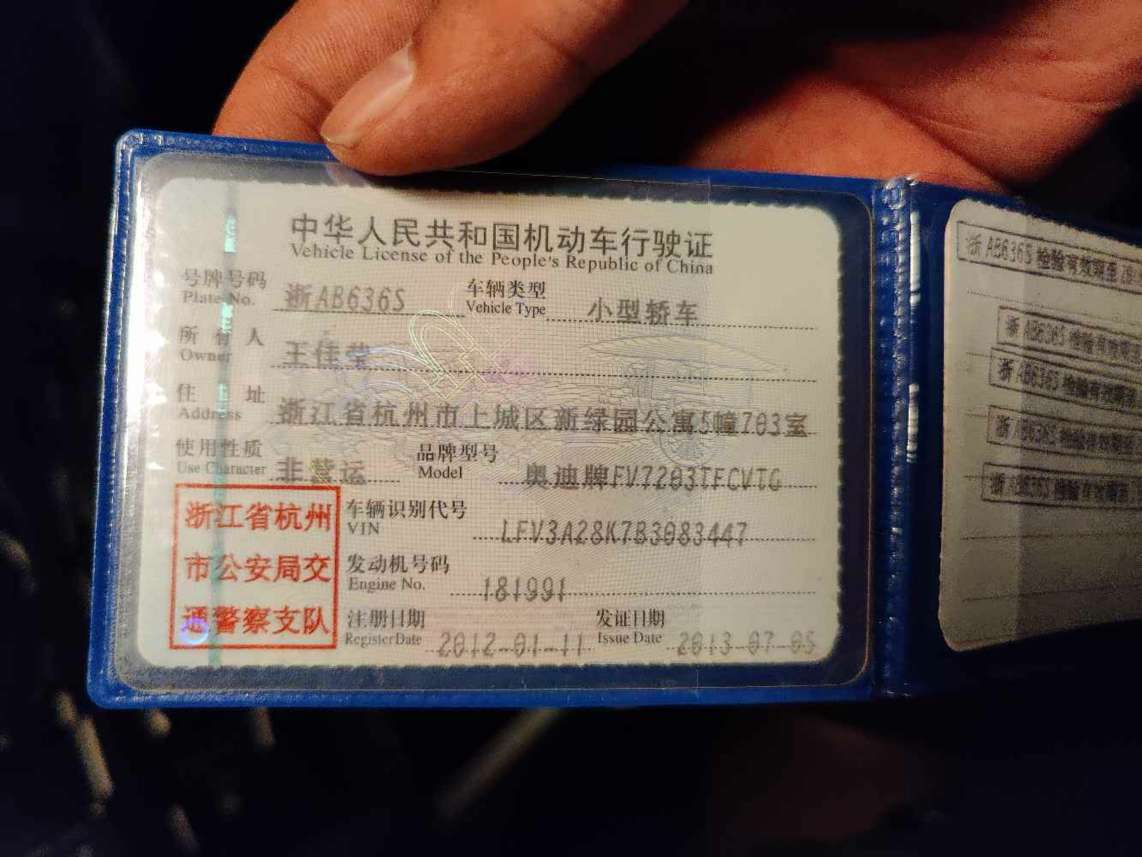 中华人民共和国机动车行驶证
Vehicle License of the People's Republic of China
号牌号码 浙AB636S 车辆类型 小型轿车
Plate No. Vehicle Type
所有人 王佳莹
Owner
住址 浙江省杭州市上城区新绿园公寓5幢703室
Address
使用性质 非营运 品牌型号 奥迪牌FV7203TFCVTG
Use Character Model
浙江省杭州
市公安局交
通警察支队
车辆识别代号 LFV3A28K7B3083447
VIN
发动机号码 181991
Engine No.
注册日期 2012-01-11 发证日期 2013-07-05
Register Date Issue Date
浙AB636S 检验有效期至
浙AB636S 检验有效期至
浙AB636S 检验有效期至
浙AB636S 检验有效期至
浙AB636S 检验有效期至